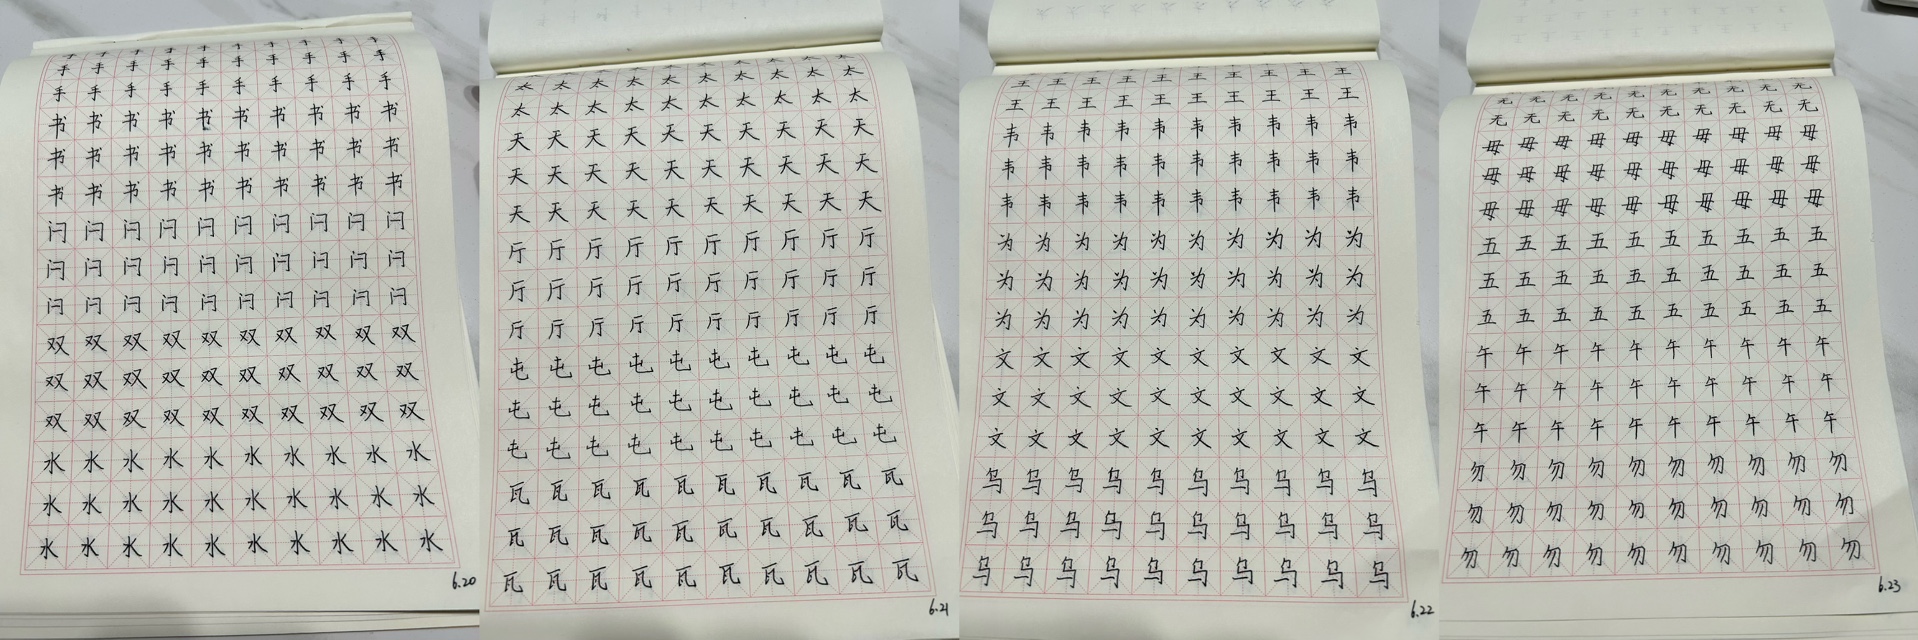 手手手手手手手手手手
手手手手手手手手手手
书书书书书书书书书书
书书书书书书书书书书
书书书书书书书书书书
闩闩闩闩闩闩闩闩闩闩
闩闩闩闩闩闩闩闩闩闩
闩闩闩闩闩闩闩闩闩闩
双双双双双双双双双双
双双双双双双双双双双
双双双双双双双双双双
水水水水水水水水水水
水水水水水水水水水水
水水水水水水水水水水
6.20
太太太太太太太太太太
太太太太太太太太太太
天天天天天天天天天天
天天天天天天天天天天
天天天天天天天天天天
厅厅厅厅厅厅厅厅厅厅
厅厅厅厅厅厅厅厅厅厅
厅厅厅厅厅厅厅厅厅厅
屯屯屯屯屯屯屯屯屯屯
屯屯屯屯屯屯屯屯屯屯
屯屯屯屯屯屯屯屯屯屯
瓦瓦瓦瓦瓦瓦瓦瓦瓦瓦
瓦瓦瓦瓦瓦瓦瓦瓦瓦瓦
瓦瓦瓦瓦瓦瓦瓦瓦瓦瓦
6.21
王王王王王王王王王王
王王王王王王王王王王
韦韦韦韦韦韦韦韦韦韦
韦韦韦韦韦韦韦韦韦韦
韦韦韦韦韦韦韦韦韦韦
为为为为为为为为为为
为为为为为为为为为为
为为为为为为为为为为
文文文文文文文文文文
文文文文文文文文文文
文文文文文文文文文文
乌乌乌乌乌乌乌乌乌乌
乌乌乌乌乌乌乌乌乌乌
乌乌乌乌乌乌乌乌乌乌
6.22
无无无无无无无无无无
无无无无无无无无无无
毋毋毋毋毋毋毋毋毋毋
毋毋毋毋毋毋毋毋毋毋
毋毋毋毋毋毋毋毋毋毋
五五五五五五五五五五
五五五五五五五五五五
五五五五五五五五五五
午午午午午午午午午午
午午午午午午午午午午
午午午午午午午午午午
勿勿勿勿勿勿勿勿勿勿
勿勿勿勿勿勿勿勿勿勿
勿勿勿勿勿勿勿勿勿勿
6.23